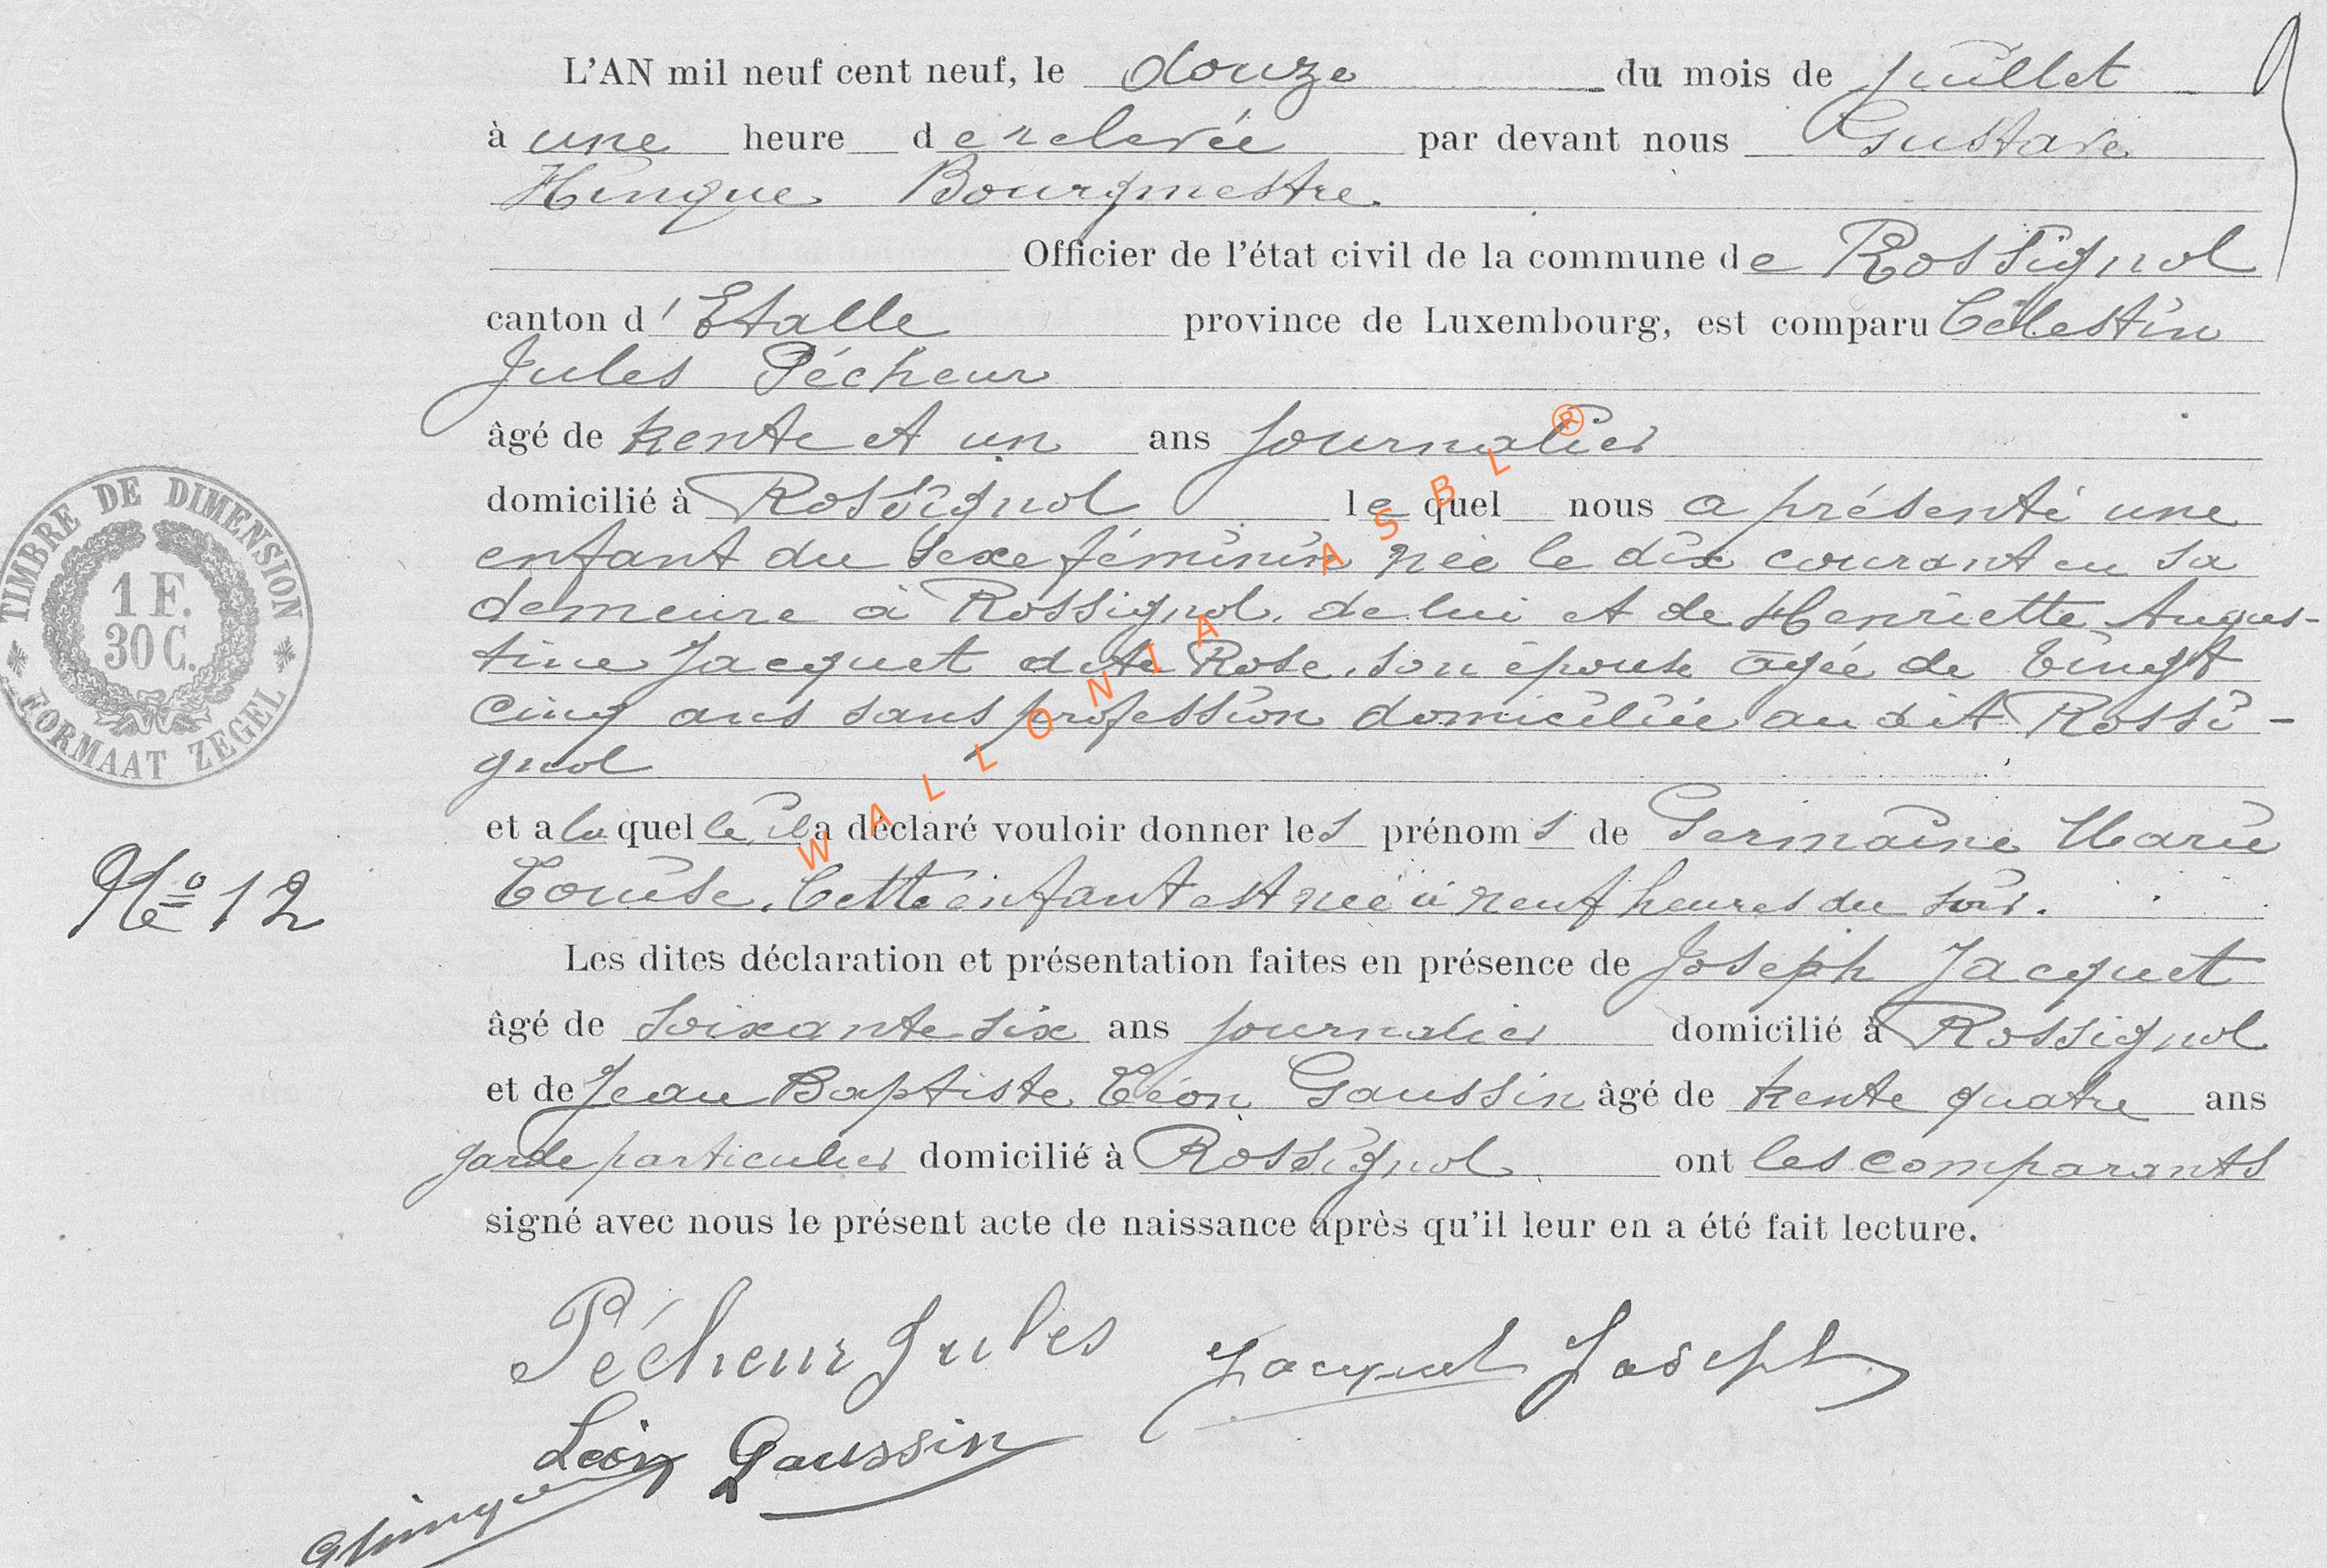 L'AN mil neuf cent neuf, le douze du mois de juillet
à une heure de relevée par devant nous Gustave
Hinque Bourgmestre
Officier de l'état civil de la commune de Rossignol
canton d'Etalle province de Luxembourg, est comparu Célestin
Jules Pécheur
âgé de trente et un ans journalier
domicilié à Rossignol lequel nous a présenté une
enfant du sexe féminin née le dix courant en sa
demeure à Rossignol, de lui et de Henriette Augus-
tine Jacquet dite Rose, son épouse âgée de vingt
cinq ans sans profession domiciliée au dit Rossi-
gnol
et a la quelle il a déclaré vouloir donner les prénoms de Germaine Marie
Louise. Cette enfant est née à neuf heures du soir.
Les dites déclaration et présentation faites en présence de Joseph Jacquet
âgé de soixante six ans journalier domicilié à Rossignol
et de Jean Baptiste Léon Gaussin âgé de trente quatre ans
garde particulier domicilié à Rossignol ont les comparants
signé avec nous le présent acte de naissance après qu'il leur en a été fait lecture.
Pécheur Jules Jacquet Joseph
Léon Gaussin
GHinque
TIMBRE DE DIMENSION
1 F.
30 C.
FORMAAT ZEGEL
No 12
WALLONIA ASBL ®